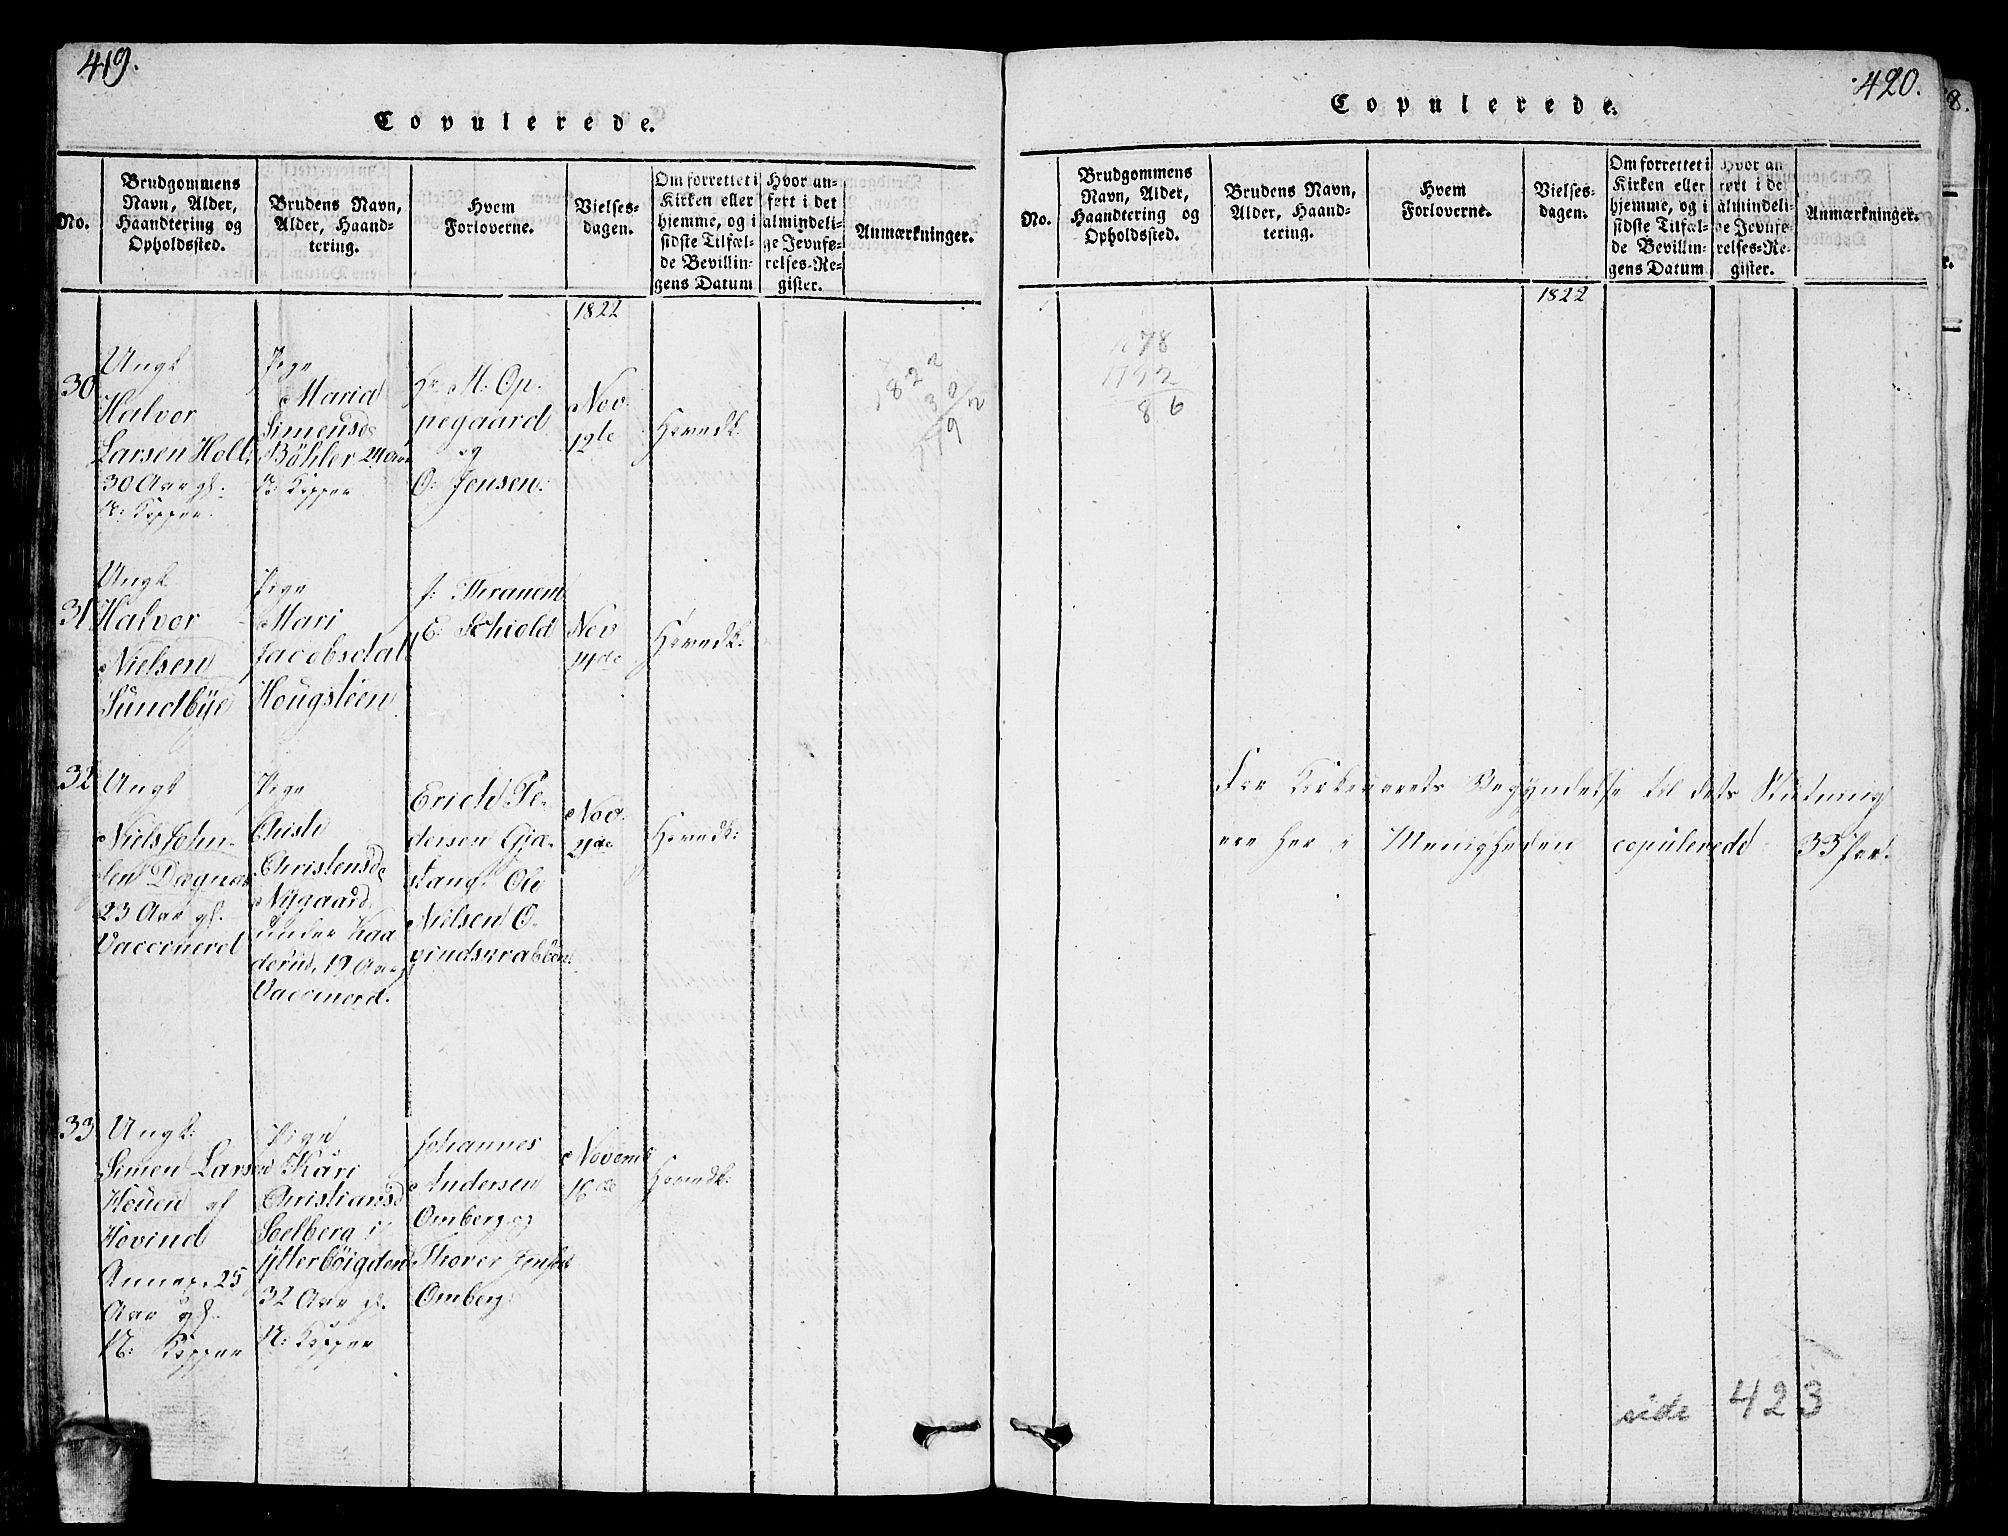 419.
Copulerede.
No.
Brudgommens
Navn, Alder,
Haandtering og
Opholdssted.
Brudens Navn,
Alder, Haand-
tering.
Hvem
Forloverne.
Vielses-
dagen.
Om forrettet i
Kirken eller
hjemme, og i
sidste Tilfæl-
de Bevillin-
gens Datum
Hvor an-
ført i det
almindeli-
ge Jevnfø-
relses-Re-
gister.
Anmærkninger.
1822
30
Ungk
Halvor
Larsen Holl
30 Aar gl.
N: Kopper.
Pige
Maria
Simensd
Böhler 24 Aar
N: Kopper
Hr M. Op-
pegaard
og
O: Jensen:
Nov.
12te
Hovedk:
1822
30
31
Ungk
Halvor
Nielsen
Sundbye
Pige
Mari
Jacobsdatt
Hougsteen
E: Schiold
Nov
14de
Hovedk:
32
Ungk
Niels John-
sen
23 Aar gl.
Vaccinerd
Pige
Christensd
Nygaard
under Kaa
derud, 19 Aar
Vaccinerd.
Erich Pe-
dersen Gja-
stang. Ole
Nielsen O-
Nov.
21de
Hovedk:
33
Ungk:
Simen Larsen
af
Hovind
Annex. 25
Aar gl.
N: Kopper
Pige
Kari
Christiansd
Soelberg i
Ytterböigden
32 Aar gl.
N: Kopper
Johannes
Andersen
Omberg og
Thorer Jensen
Omberg:
Novemb
16de
Hovedk:
420.
Copulerede.
No.
Brudgommens
Navn, Alder,
Haandtering og
Opholdssted.
Brudens Navn,
Alder, Haand-
tering.
Hvem
Forloverne.
Vielses-
dagen.
Om forrettet i
Kirken eller
hjemme, og i
sidste Tilfæl-
de Bevillin-
gens Datum
Hvor an-
ført i de
almindeli-
ge Jevnfø-
relses-Re-
gister.
Anmærkninger.
1822
78
86
Fra Kirkeaarets Begyndelse til dets Slutning
ere her i Menigheden copulerede 33 Par.
side 423